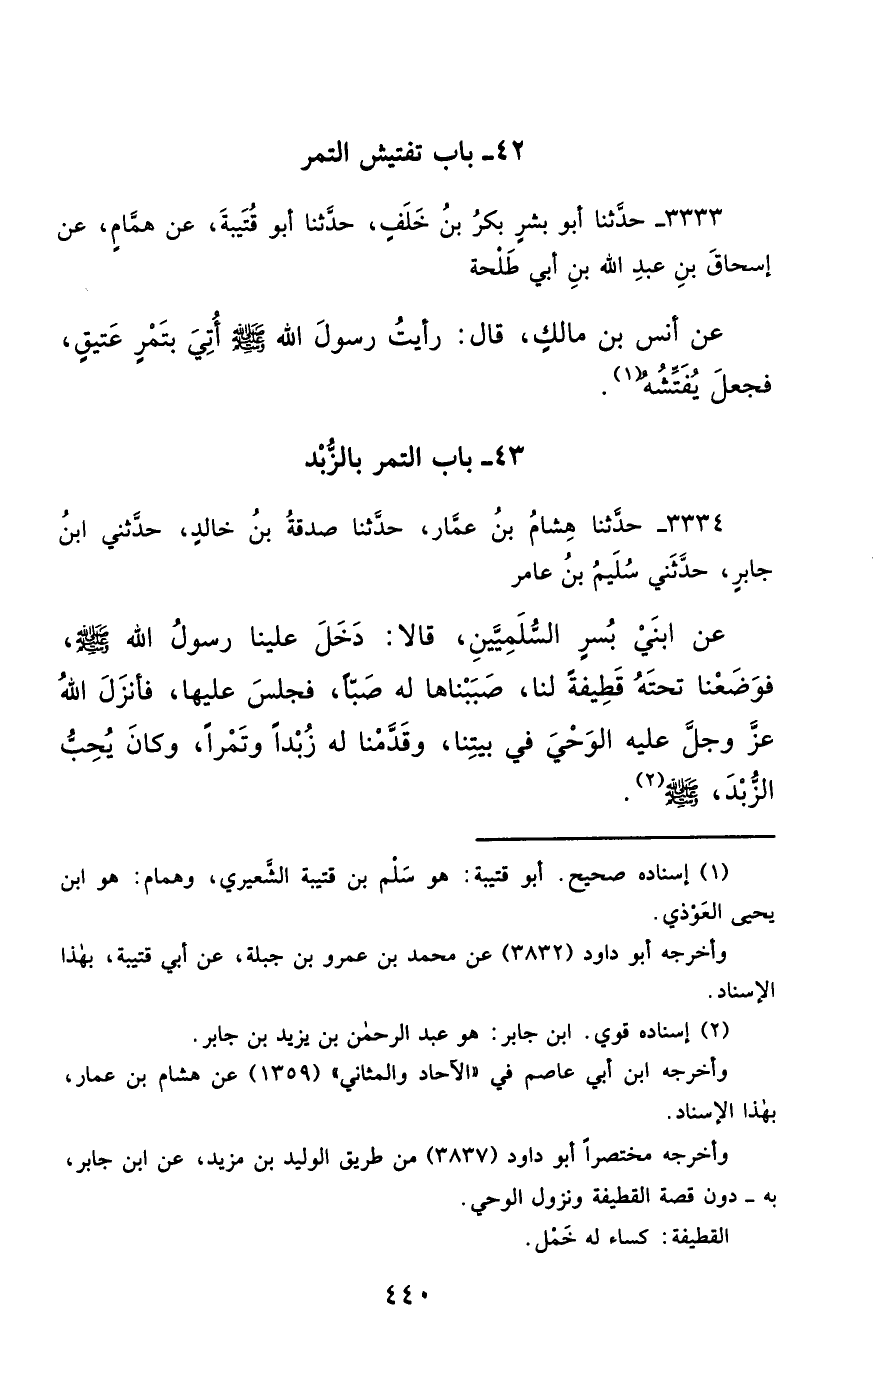 ٤٢ـ باب تفتيش التمر
٣٣٣٣ـ حدَّثنا أبو بشرٍ بكرُ بنُ خَلَفٍ، حدَّثنا أبو قُتَيبةَ، عن همَّامٍ، عن
إسحاقَ بنِ عبدِ الله بنِ أبي طَلْحة
عن أنس بن مالكٍ، قال: رأيتُ رسولَ الله ﷺ أُتِيَ بتَمْرٍ عَتيقٍ،
فجعلَ يُفَتِّشُهُ(١).
٤٣ـ باب التمر بالزُّبْد
٣٣٣٤ـ حدَّثنا هِشامُ بنُ عمَّار، حدَّثنا صدقةُ بنُ خالدٍ، حدَّثني ابنُ
جابرٍ، حدَّثَني سُلَيمُ بنُ عامر
عن ابنَيْ بُسرٍ السُّلَمِيَّينِ، قالا: دَخَلَ علينا رسولُ الله ﷺ،
فوَضَعْنا تحتَهُ قَطِيفةً لنا، صَبَبْناها له صَبّاً، فجلسَ عليها، فأنزَلَ اللهُ
عزَّ وجلَّ عليه الوَحْيَ في بيتِنا، وقَدَّمْنا له زُبْداً وتَمْراً، وكانَ يُحِبُّ
الزُّبْدَ، ﷺ(٢).
(١) إسناده صحيح. أبو قتيبة: هو سَلْم بن قتيبة الشَّعيري، وهمام: هو ابن
يحيى العَوْذي.
وأخرجه أبو داود (٣٨٣٢) عن محمد بن عمرو بن جبلة، عن أبي قتيبة، بهٰذا
الإسناد.
(٢) إسناده قوي. ابن جابر: هو عبد الرحمٰن بن يزيد بن جابر.
وأخرجه ابن أبي عاصم في «الآحاد والمثاني» (١٣٥٩) عن هشام بن عمار،
بهٰذا الإسناد.
وأخرجه مختصراً أبو داود (٣٨٣٧) من طريق الوليد بن مزيد، عن ابن جابر،
به ـ دون قصة القطيفة ونزول الوحي.
القطيفة: كساء له خَمْل.
٤٤٠